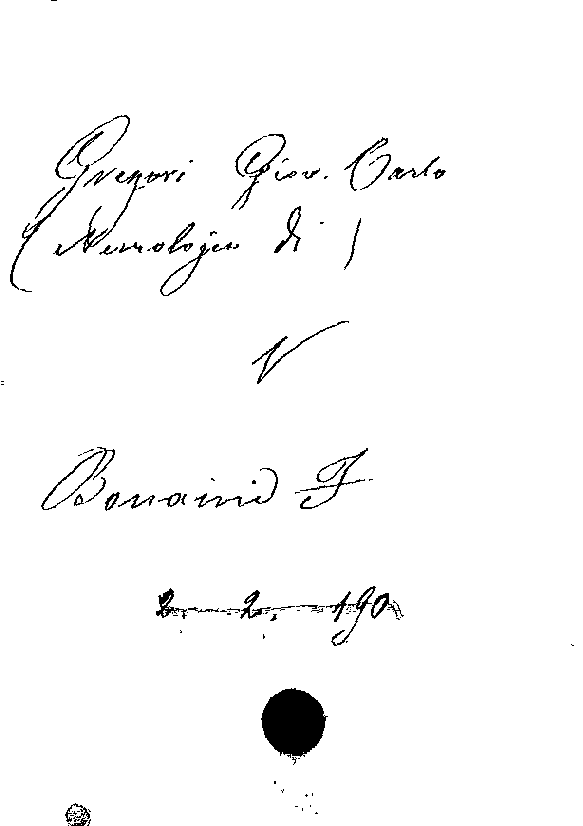 Gregori Giov. Carlo
(Necrologia di)
V
Bonaini F
2. 2. 190